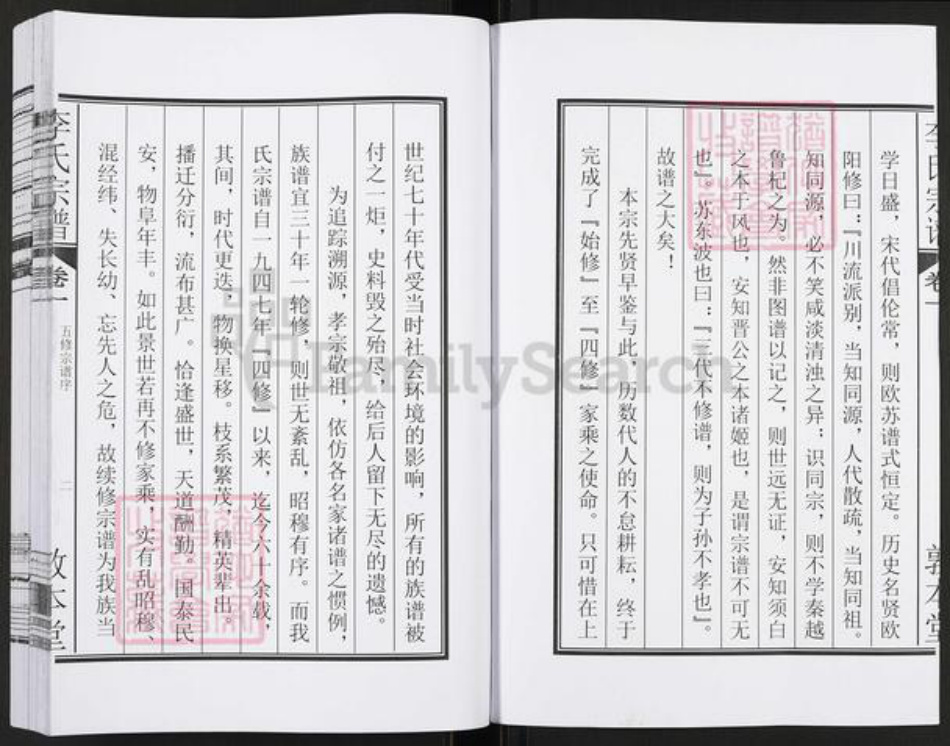 学日盛，宋代倡伦常，则欧苏谱式恒定。历史名贤欧
阳修曰：『川流派别，当知同源，人代散疏，当知同祖。
知同源，必不笑咸淡清浊之异；识同宗，则不学秦越
鲁杞之为。然非图谱以记之，则世远无证，安知须白
之本于风也，安知晋公之本诸姬也，是谓宗谱不可无
也』。苏东波也曰：『三代不修谱，则为子孙不孝也』。
故谱之大矣！
本宗先贤早鉴与此，历数代人的不怠耕耘，终于
完成了『始修』至『四修』家乘之使命。只可惜在上
世纪七十年代受当时社会环境的影响，所有的族谱被
付之一炬，史料毁之殆尽，给后人留下无尽的遗憾。
为追踪溯源，孝宗敬祖，依仿各名家诸谱之惯例，
族谱宜三十年一轮修，则世无紊乱，昭穆有序。而我
氏宗谱自一九四七年『四修』以来，迄今六十余载，
其间，时代更迭，物换星移。枝系繁茂，精英辈出。
播迁分衍，流布甚广。恰逢盛世，天道酬勤。国泰民
安，物阜年丰。如此景世若再不修家乘，实有乱昭穆、
混经纬、失长幼、忘先人之危，故续修宗谱为我族当
李氏宗谱
卷一
五修宗谱序
二
敦本堂
FamilySearch